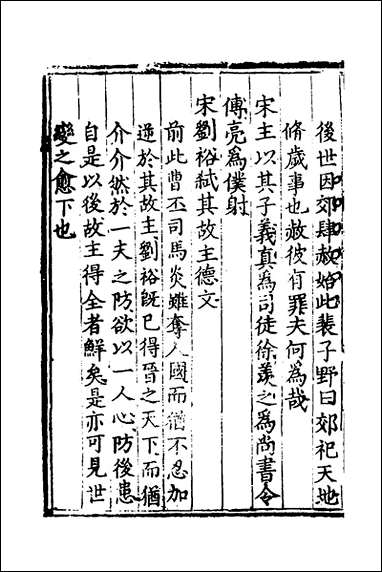 後世因郊肆赦始此裴子野曰郊祀天地
脩歲事也赦彼有罪夫何為哉
宋主以其子義真為司徒徐羨之為尚書令
傅亮為僕射
宋劉裕弒其故主德文
前此曹丕司馬炎雖奪人國而猶不忍加
逆於其故主劉裕既已得晉之天下而猶
介介然於一夫之防欲以一人心防後患
自是以後故主得全者鮮矣是亦可見世
變之愈下也